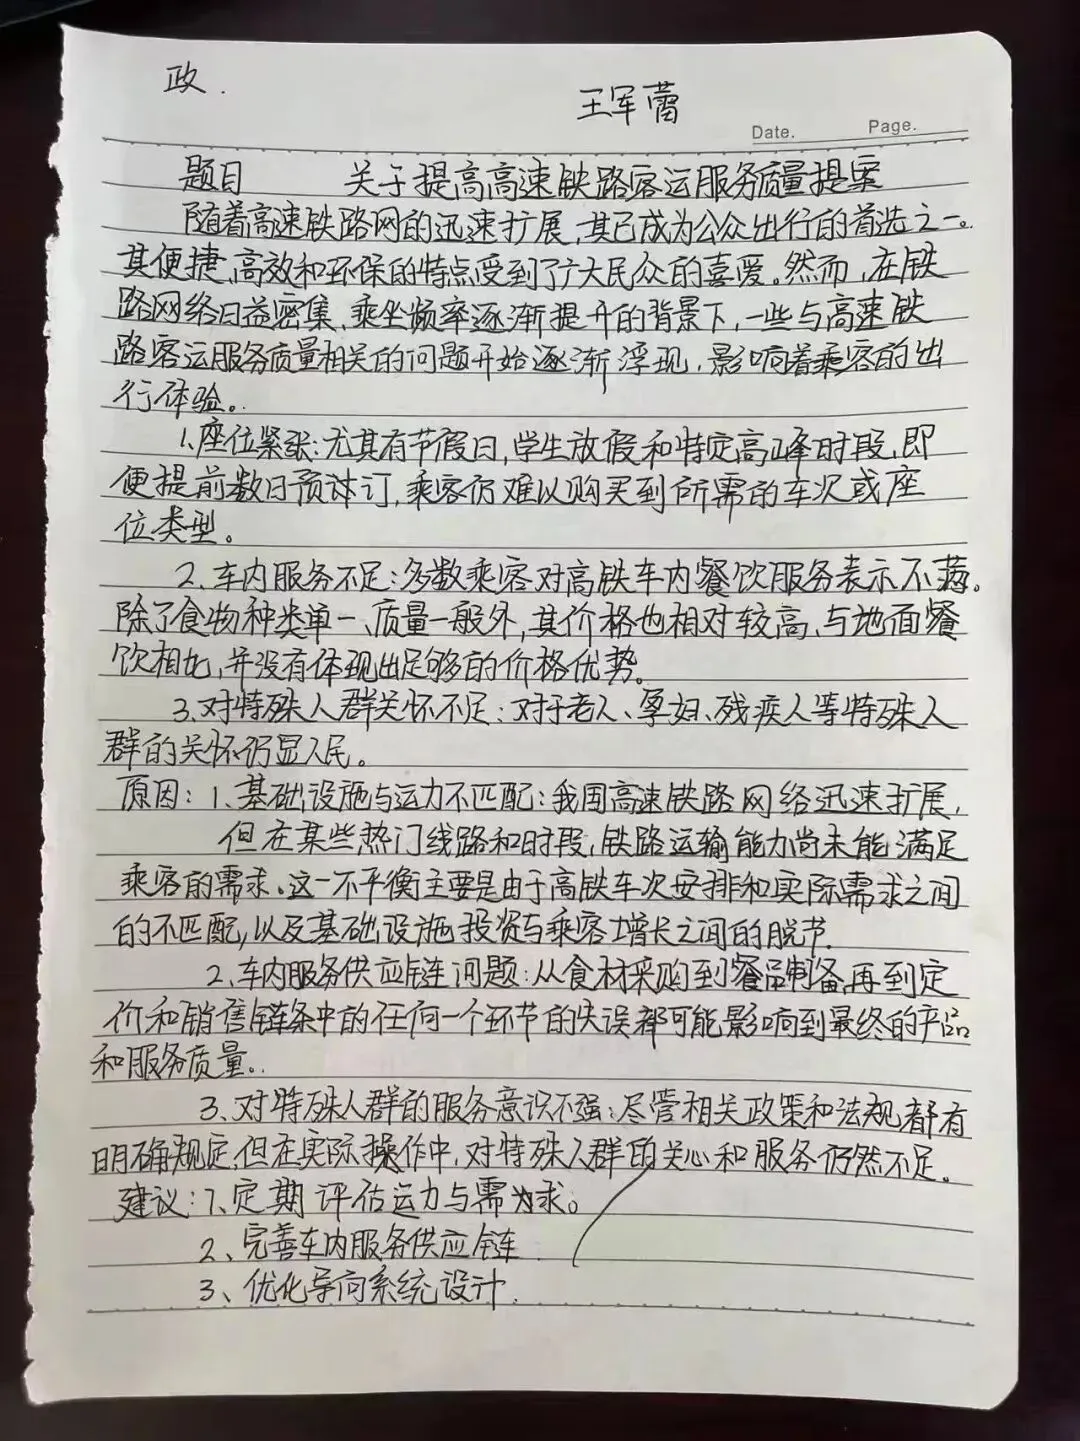 政.
王军蕾
Date. Page.
题目 关于提高高速铁路客运服务质量提案
随着高速铁路网的迅速扩展,其已成为公众出行的首选之一。
其便捷、高效和环保的特点受到了广大民众的喜爱。然而,在铁
路网络日益密集、乘坐频率逐渐提升的背景下,一些与高速铁
路客运服务质量相关的问题开始逐渐浮现,影响着乘客的出
行体验。
1.座位紧张:尤其有节假日,学生放假和特定高峰时段,即
便提前数日预订,乘客仍难以购买到所需的车次或座
位类型。
2、车内服务不足:多数乘客对高铁车内餐饮服务表示不满。
除了食物种类单一、质量一般外,其价格也相对较高、与地面餐
饮相比,并没有体现出足够的价格优势。
3、对特殊人群关怀不足:对于老人、孕妇、残疾人等特殊人
群的关怀仍显不足。
原因:1、基础设施与运力不匹配:我国高速铁路网络迅速扩展,
但在某些热门线路和时段,铁路运输能力尚未能满足
乘客的需求。这一不平衡主要是由于高铁车次安排和实际需求之间
的不匹配,以及基础设施投资与乘客增长之间的脱节.
2、车内服务供应链问题:从食材采购到餐品制备,再到定
价和销售链条中的任何一个环节的失误都可能影响到最终的产品
和服务质量。
3、对特殊人群的服务意识不强:尽管相关政策和法规都有
明确规定,但在实际操作中,对特殊人群的关心和服务仍然不足。
建议:1、定期评估运力与需求。
2、完善车内服务供应链
3、优化导向系统设计.